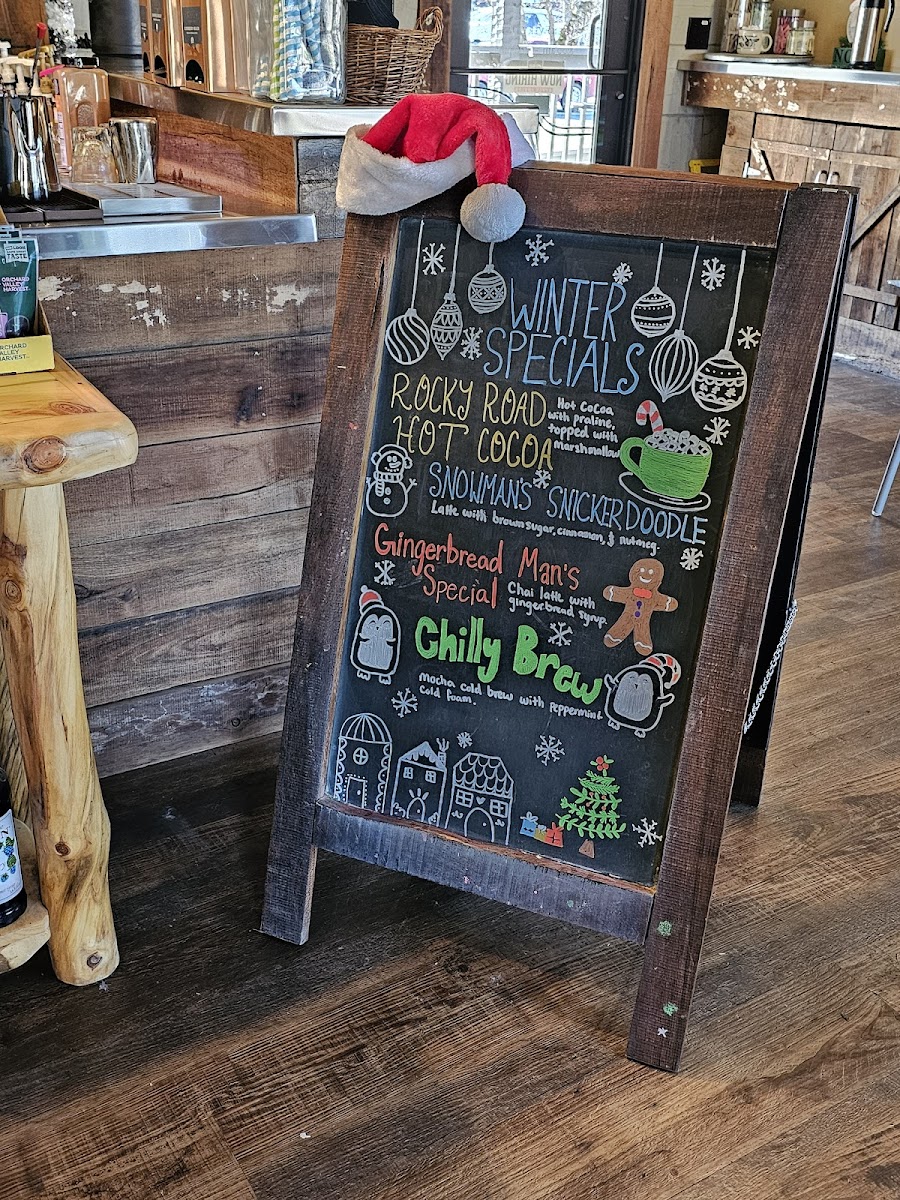 WINTER
SPECIALS
ROCKY ROAD
HOT COCOA
Hot Cocoa
with praline,
topped with
marshmallow
SNOWMAN'S SNICKERDOODLE
Latte with brown sugar, cinnamon, & nutmeg.
Gingerbread Man's
Special
Chai latte with
gingerbread syrup.
Chilly Brew
mocha cold brew with peppermint
cold foam.
TASTE
ORCHARD
VALLEY
HARVEST
ORCHARD
VALLEY
HARVEST
NOW HIRING